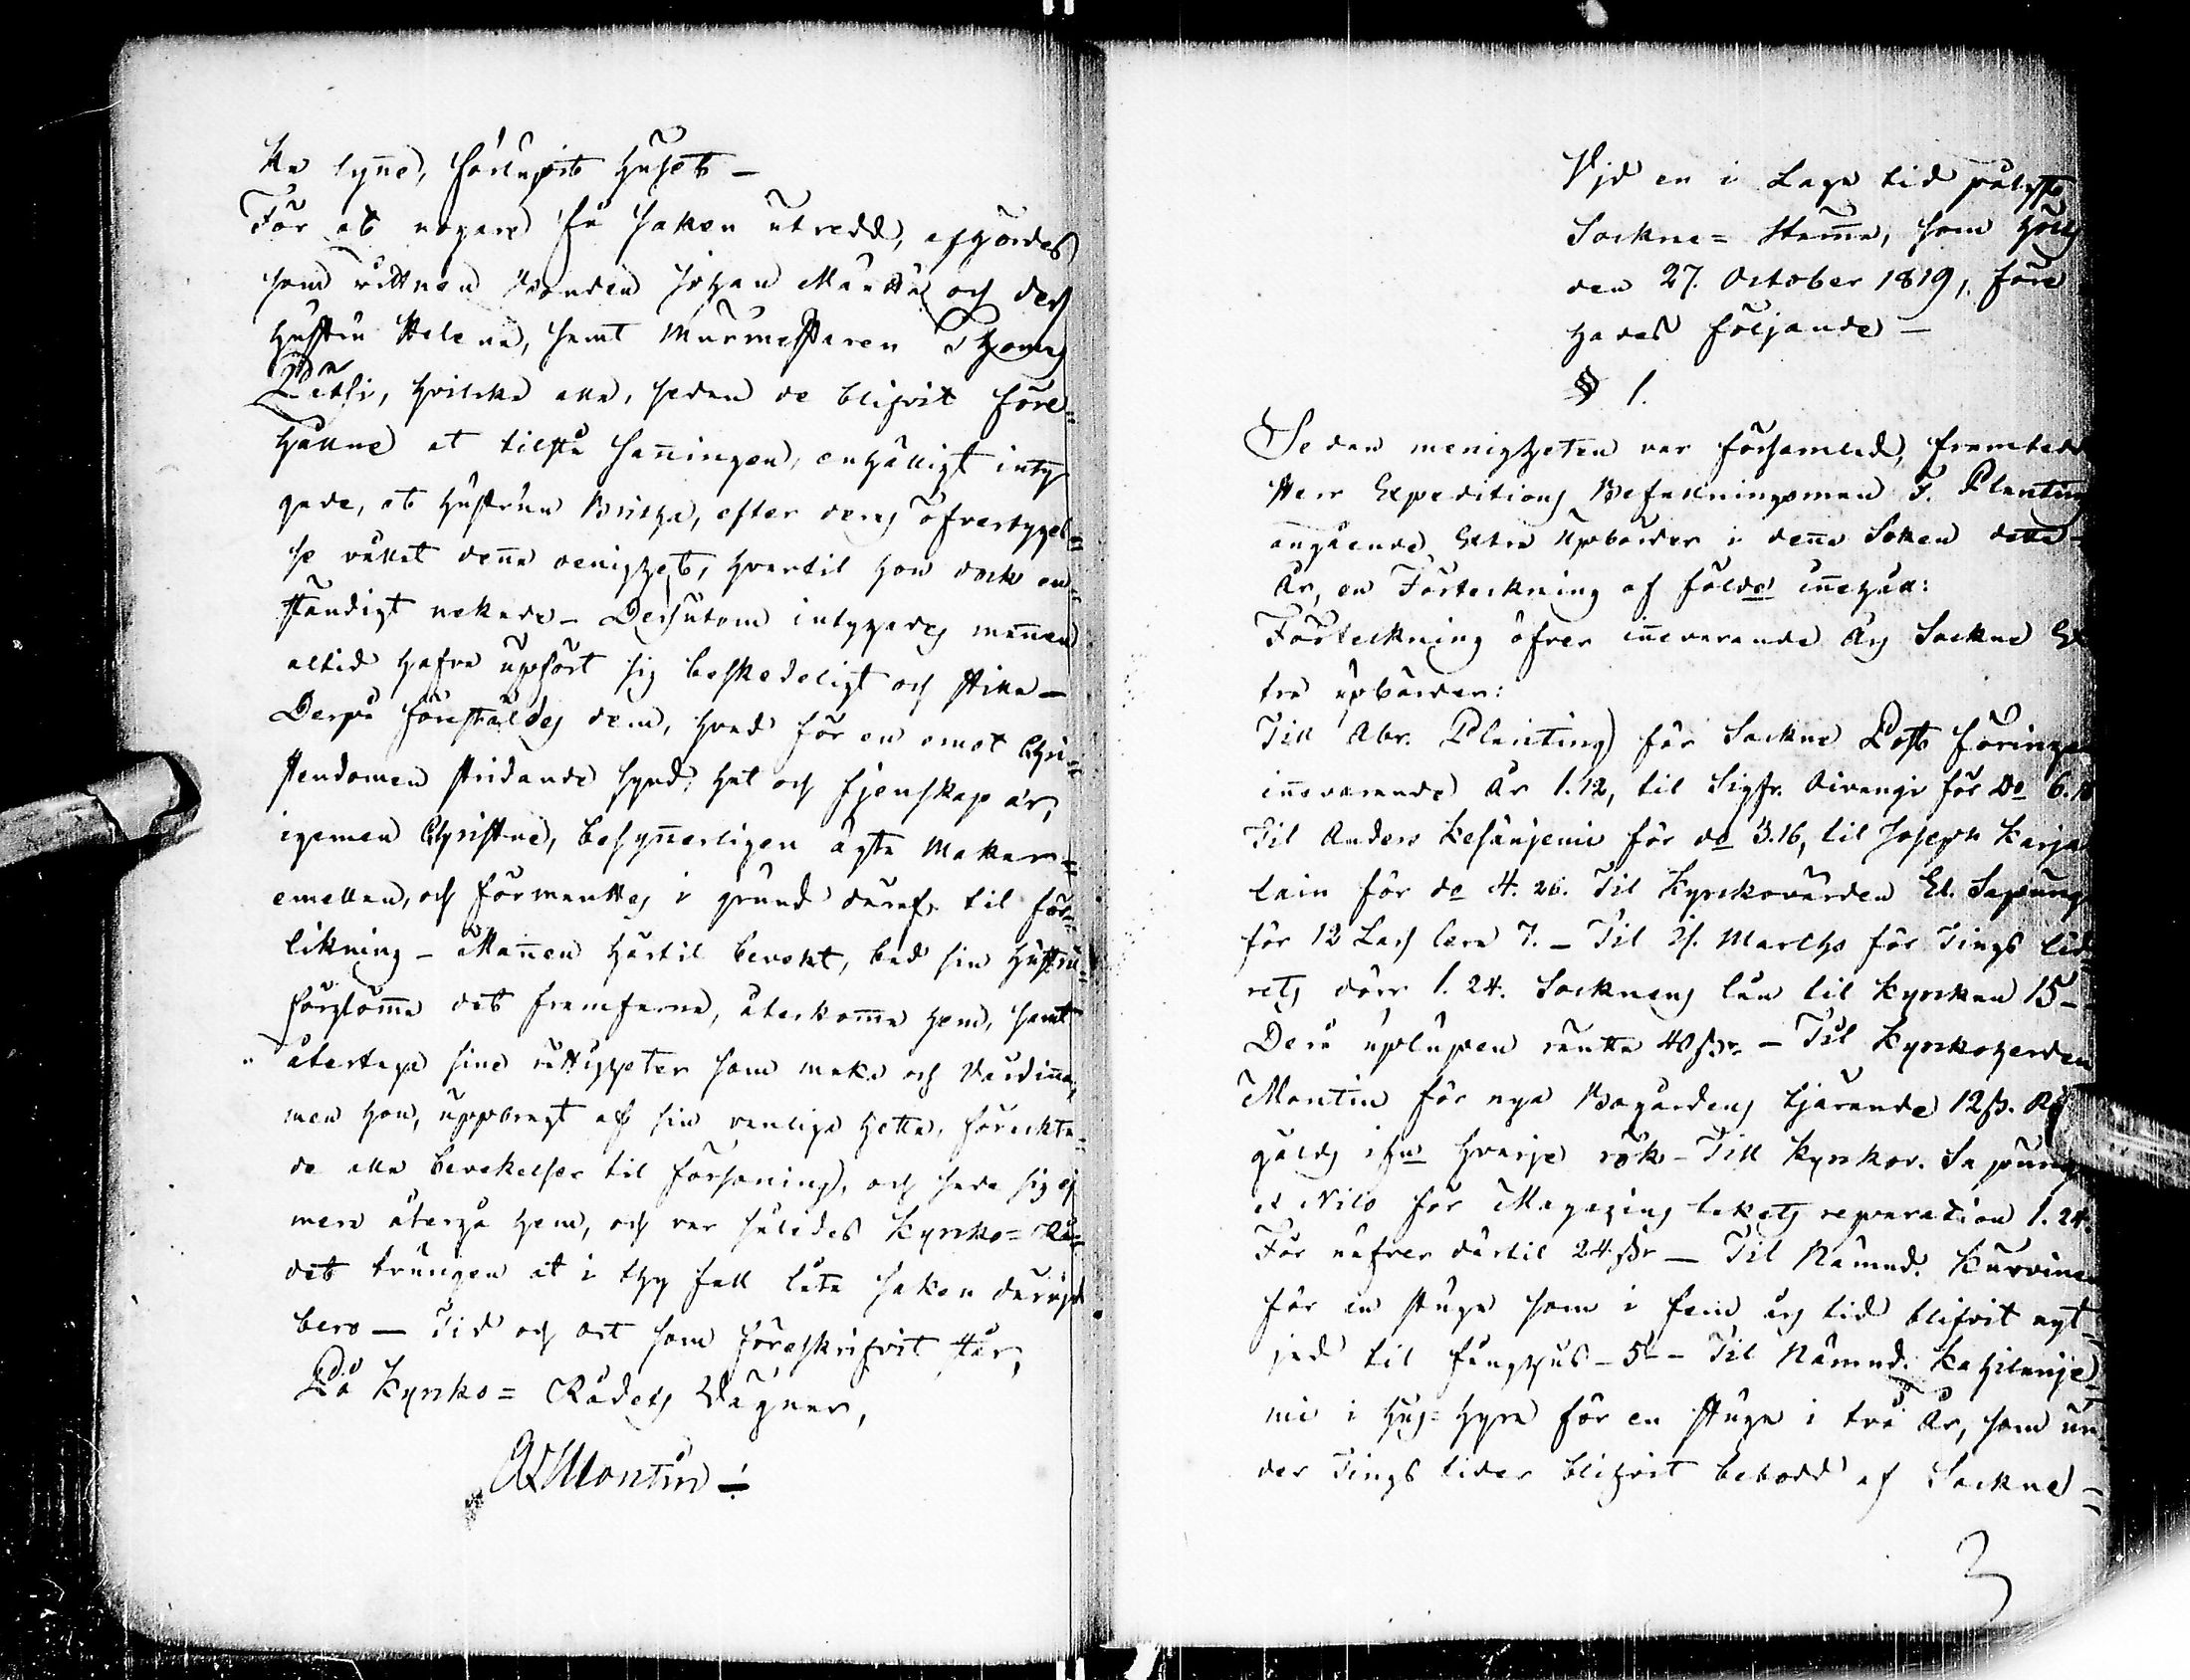 ka lynne, förlupit huset –
För at nogare få saken utredd, afhördes
som vittnen Bonden Johan Mäkttä och dess
hustru Helena, samt Murmestaren Thomas
Pätsi, hvilka alla, sedan de blifvit före-
hållne at tilstå sanningen, enhälligt inty-
gade, at hustrun Britha, efter deras öfvertygel-
se vållat denna oenighet, hvartil hon dock en-
ständigt nekade – Dessutom intygades mannen
altid hafva upfört sig beskedeligt och stilla –
Derpå förestäldes dem, hvad för en emot Chri-
stendomen stridande synd, hat och fjenskap är,
igemen Christne, besynnerligen ägta Makar
emellan, och förmanttes i grund deraf til för-
likning – Mannen härtil bevekt, bad sin hustru
förglömma det framfarna, återkomma hem, samt
återtaga sine rättigheter som maka och Värdinna,
men hon, uppbragt af sin vanliga hetta, förakta-
de alla bevekelser til försoning, och sade sig ej
mera återgå hem, och var således Kyrko=Rå-
det tvungen at i thy fall låta saken dervid
bero – Tid och ort som föreskrifvit står,
På Kyrko=Rådets Vägnar,
Montin
Vid en i Laga tid pålyst
Sockne=Stämma, som hölls
den 27. October 1819, före
hades följande –
§ 1.
Sedan menigheten var församlad, framtedde
Herr Expeditions Befallningsman J. Planting
angående Extra Upbörder i denna Soken detta
År, en Förteckning af följde innehåll:
Förteckning öfver innevarande Års Sockne Ex
tra upbörder:
Till Abr. Planting för Sockne Post föringen
innevarande År 1.12, til Sigfr. för do 6.
Til Anders Kesänjemi för do 3.16, til Joseph Karja
lain för do 4. 26. Til Kyrkovärden El. Sapung
för 12 Lass lera 7. – Til Is. Martko för Tings
rets dörr 1. 24. Socknens lån til Kyrkan 15 –
Derå uplupen ränta 40 sr. – Til Kyrkoherden
Montin för nya Bogårdens tjärande 12 s. R
gälds ifrn hvarje rök – Till Kyrkov. Sapung
et Nilo för Magazins takets reparation 1. 24.
För näfver därtil 24 sr – Til Nämnd. Kurvinen
för en stuga som i fem års tid blifvit nyt-
jad til fånghus – 5 – – Til Nämnd. Kahilanje-
mi i Hus=hyra för en stuga i två År, som un-
der Tings tider blifvit bebodd af Sockne –
3